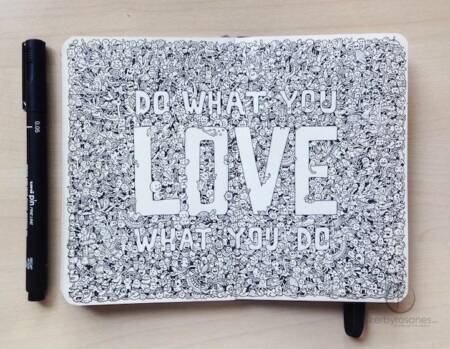 DO WHAT YOU
LOVE
WHAT YOU DO
0.05
uni pin
kerbyrosanes